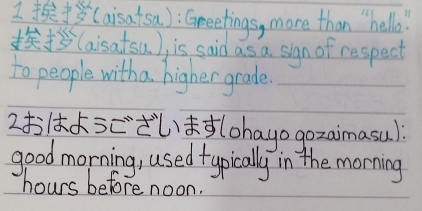 1 挨拶(aisatsa): Greetings, more than "hello".
挨拶(aisatsu), is said as a sign of respect
to people with a higher grade.
2おはようございます(ohayo gozaimasu):
good morning, used typically in the morning
hours before noon.